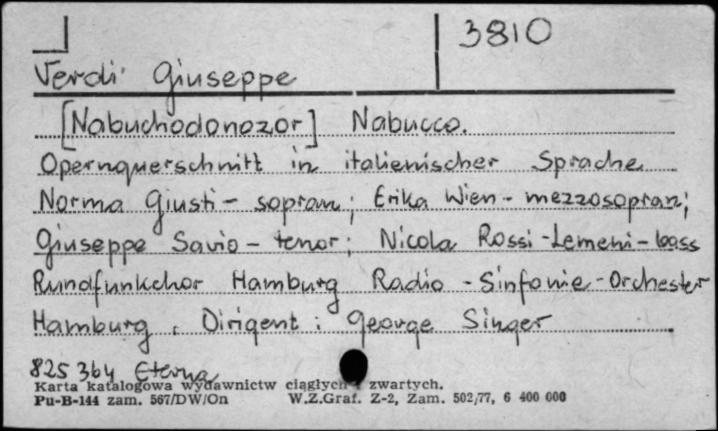 3810
Verdi Giuseppe
[Nabuchodonozor] Nabucco.
Opernquerschnitt in italienischer Sprache
Norma Giusti - sopran; Erika Wien - mezzosopran;
Giuseppe Savio - tenor; Nicola Rossi-Lemeni - bass
Rundfunkchor Hamburg Radio - Sinfonie - Orchester
Hamburg, Dirigent: George Singer
825 364 Eterna
Karta katalogowa wydawnictw ciągłych i zwartych.
Pu-B-144 zam. 567/DW/On W.Z.Graf. Z-2, Zam. 502/77, 6 400 000